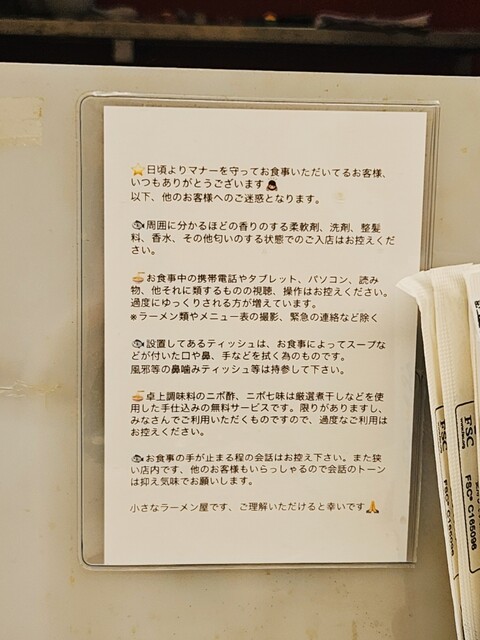 ⭐日頃よりマナーを守ってお食事いただいてるお客様、
いつもありがとうございます🙇
以下、他のお客様へのご迷惑となります。
🐟周囲に分かるほどの香りのする柔軟剤、洗剤、整髪
料、香水、その他匂いのする状態でのご入店はお控えくだ
さい。
🍜お食事中の携帯電話やタブレット、パソコン、読み
物、他それに類するものの視聴、操作はお控えください。
過度にゆっくりされる方が増えています。
※ラーメン類やメニュー表の撮影、緊急の連絡など除く
🐟設置してあるティッシュは、お食事によってスープな
どが付いた口や鼻、手などを拭く為のものです。
風邪等の鼻噛みティッシュ等は持参して下さい。
🍜卓上調味料のニボ酢、ニボ七味は厳選煮干しなどを使
用した手仕込みの無料サービスです。限りがありますし、
みなさんでご利用いただくものですので、過度なご利用は
お控えください。
🐟お食事の手が止まる程の会話はお控え下さい。また狭
い店内です、他のお客様もいらっしゃるので会話のトーン
は抑え気味でお願いします。
小さなラーメン屋です、ご理解いただけると幸いです🙏
FSC
FSC® C165096
FSC
FSC® C165096